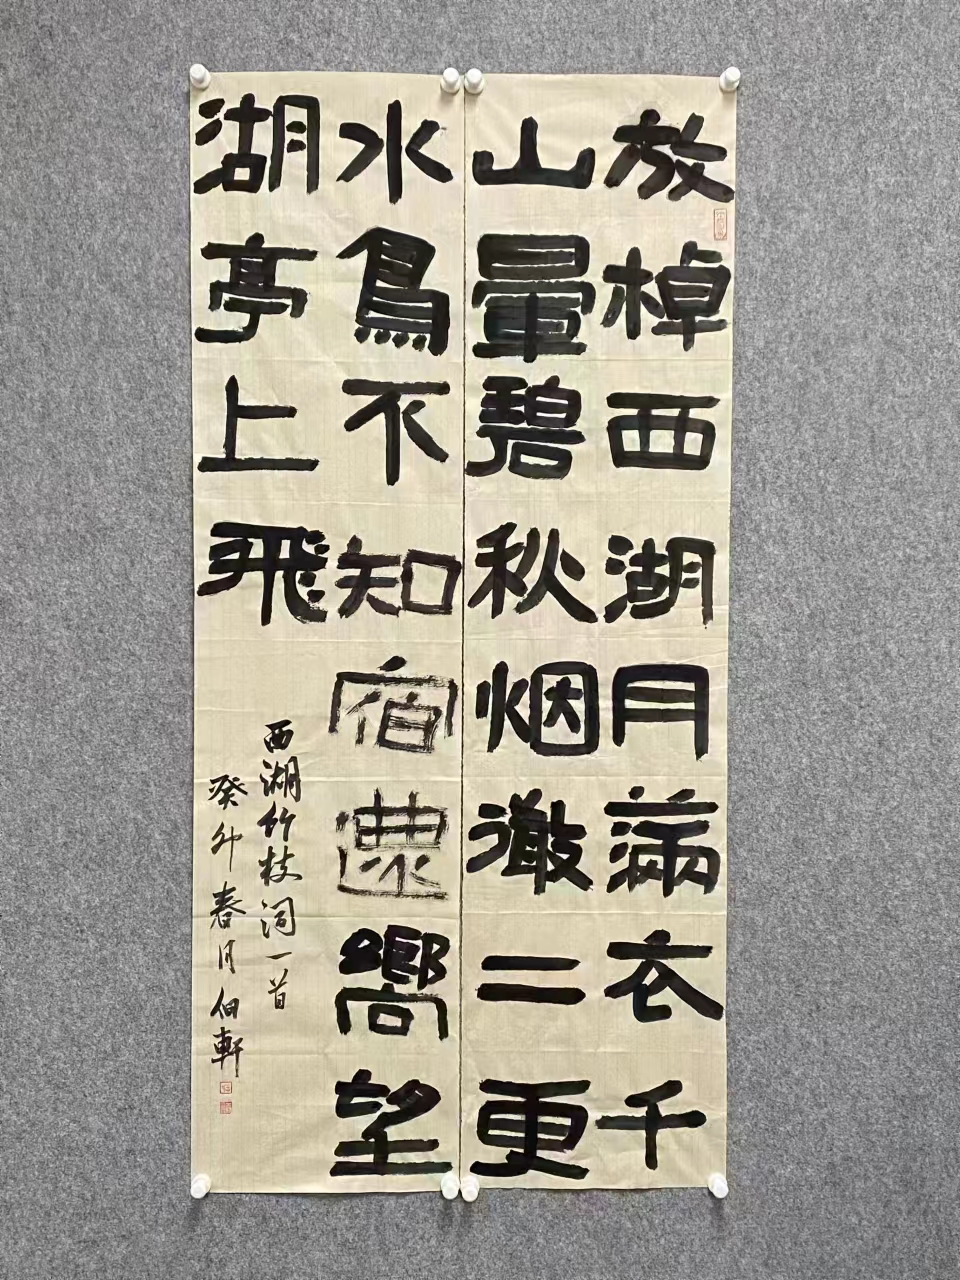 放棹西湖月滿衣千
山暈碧秋烟微二更
水鳥不知宿還嚮望
湖亭上飛
西湖竹枝詞一首
癸卯春月伯軒